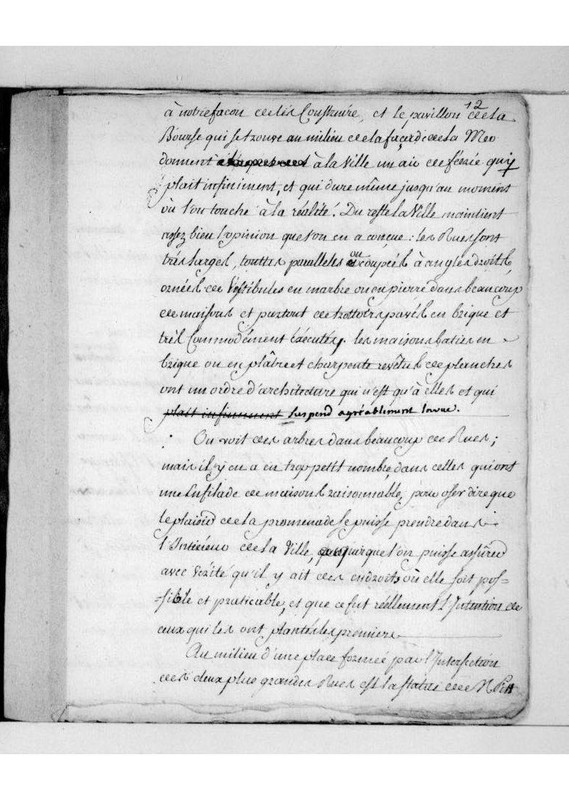 12
à notre façon de les Construire, et le pavillon de la
Bourse qui se trouve au milieu de la façade de la Mer
donnent à la Ville un air de féerie qui
plait infiniment, et qui dure même jusqu'au moment
où l'on touche à la réalité. Du reste la Ville maintient
assez bien l'opinion que l'on en a conçue : les Rues sont
très larges, toutes paralleles ou coupées à angles droits,
ornées de Vestibules en marbre ou en pierre dans beaucoup
de maisons et partout de trottoirs pavés en brique et
très Commodément éxécutés. les maisons baties en
brique ou en plâtre et charpente revêtues de planches
ont un ordre d'architecture qui n'est qu'à elles et qui
plait infiniment suspend agréablement la vue.
On voit des arbres dans beaucoup de Rues ;
mais il y en a en trop petit nombre dans celles qui ont
une Enfilade de maisons raisonnable, pour oser dire que
le plaisir de la promenade se puisse prendre dans
l'Intérieur de la Ville, quoique l'on puisse assurer
avec vérité qu'il y ait des endroits où elle soit pos-
-sible et praticable, et que ce fut réellement l'Intention de
ceux qui les ont plantés les premiers.
Au milieu d'une place formée par l'Intersection
des deux plus grandes Rues est la statue de M. Pitt